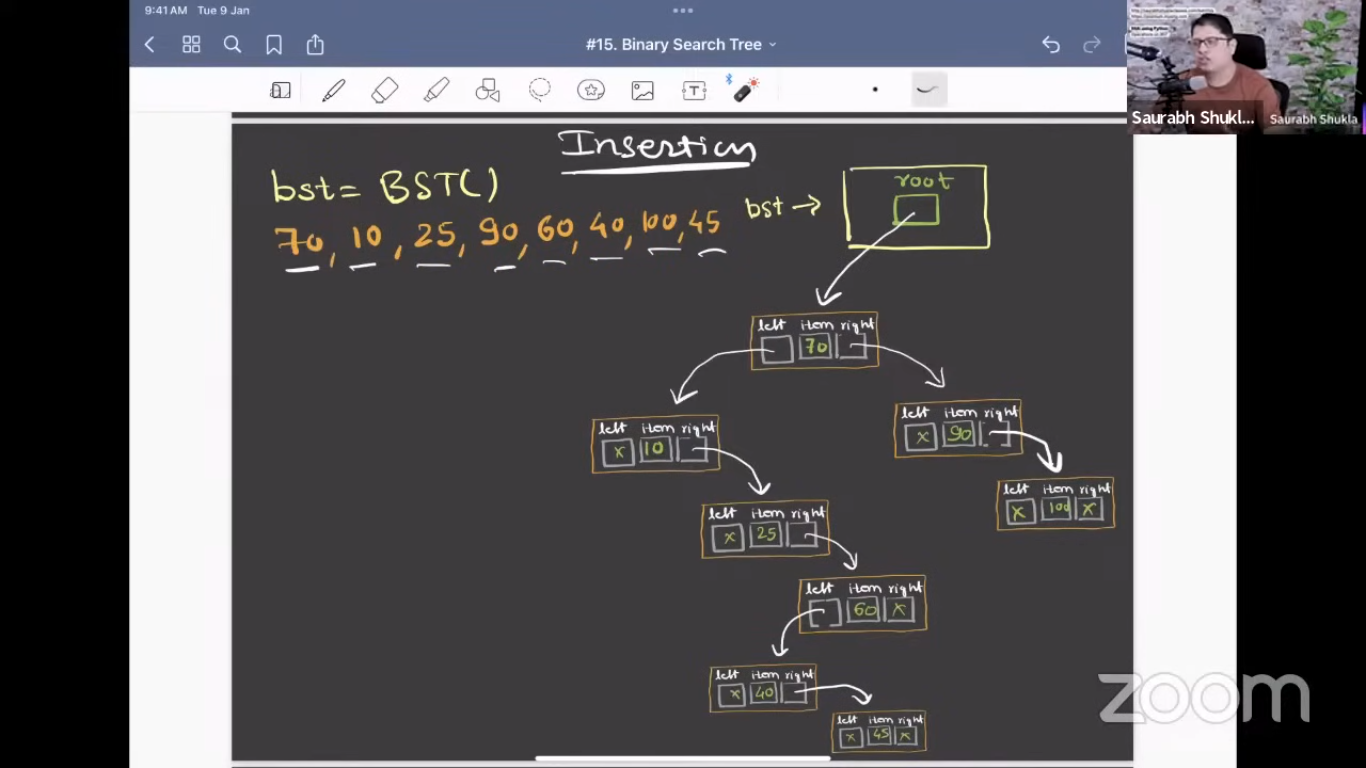 9:41 AM Tue 9 Jan
#15. Binary Search Tree
Saurabh Shukl...
Saurabh Shukla
Insertion
bst = BST()
70, 10, 25, 90, 60, 40, 100, 45
bst →
root
left item right
70
left item right
x 10
left item right
x 90
left item right
x 100 x
left item right
x 25
left item right
60 x
left item right
x 40
left item right
x 45 x
zoom